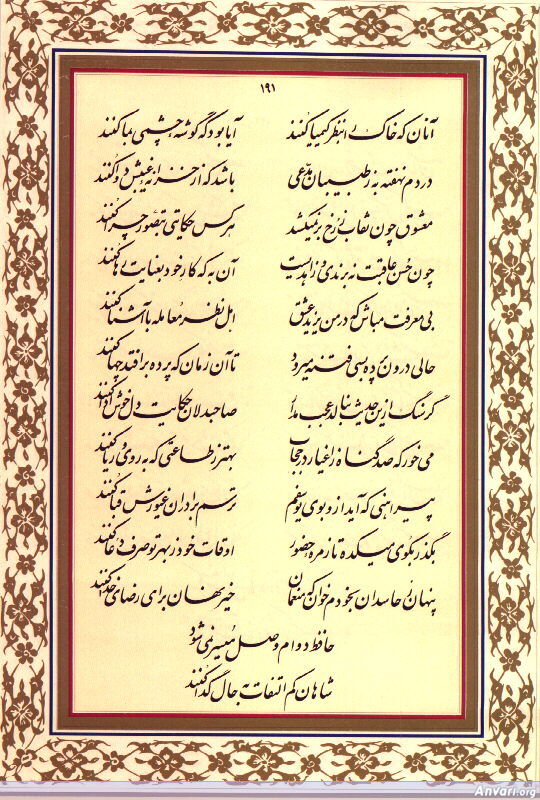 ۱۹۱
آنان که خاک را بنظر کیمیا کنند آیا بود که گوشه چشمی بما کنند
دردم نهفته به ز طبیبان مدعی باشد که از خزانه غیبش دوا کنند
معشوق چون نقاب ز رخ بر نمیکشد هر کس حکایتی بتصور چرا کنند
چون حسن عاقبت نه برندی و زاهدیست آن به که کار خود بعنایت رها کنند
بی معرفت مباش که در من یزید عشق اهل نظر معامله با آشنا کنند
حالی درون پرده بسی فتنه میرود تا آن زمان که پرده برافتد چها کنند
گر سنگ ازین حدیث بنالد عجب مدار صاحبدلان حکایت دل خوش ادا کنند
می خور که صد گناه ز اغیار در حجاب بهتر ز طاعتی که به روی و ریا کنند
پیراهنی که آید ازو بوی یوسفم ترسم برادران غیورش قبا کنند
بگذر بکوی میکده تا زمره حضور اوقات خود ز بهر تو صرف دعا کنند
پنهان ز حاسدان بخودم خوان که منعمان خیر نهان برای رضای خدا کنند
حافظ دوام وصل میسر نمی شود
شاهان کم التفات به حال گدا کنند
Anvari.org